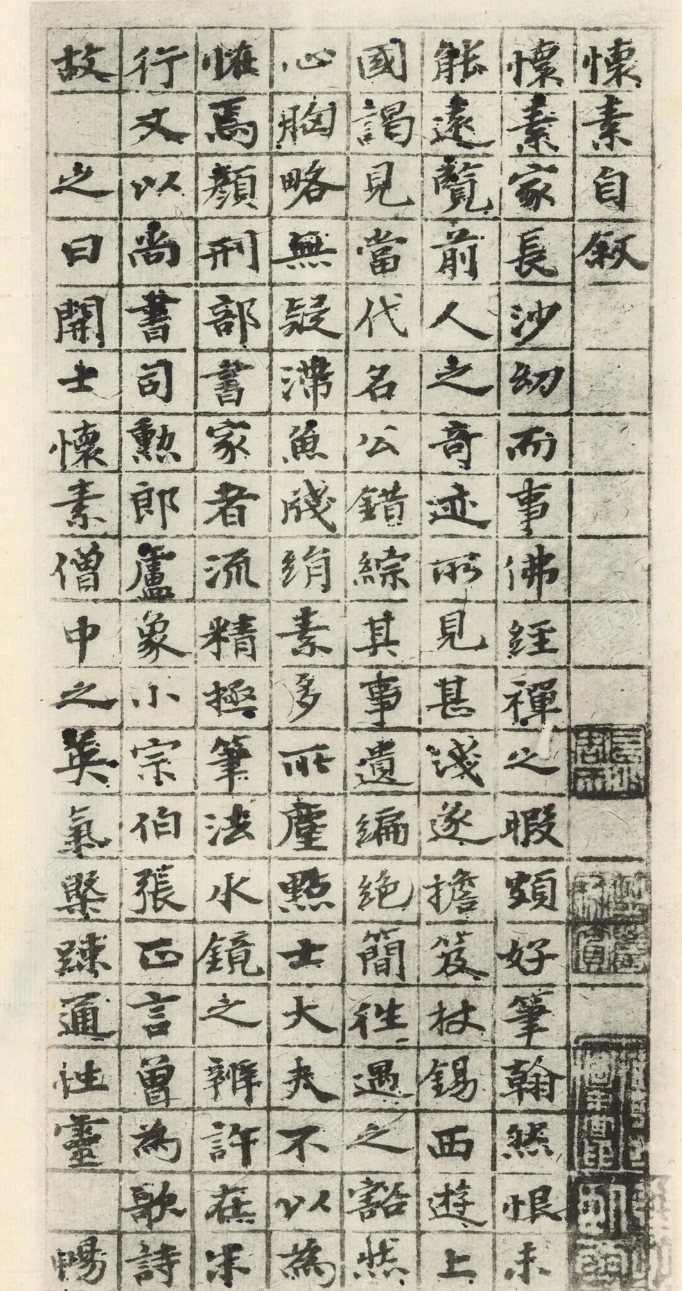 懷素自敘
懷素家長沙幼而事佛經禪之暇頗好筆翰然恨未
能遠覽前人之奇迹所見甚淺遂擔笈杖錫西遊上
國謁見當代名公錯綜其事遺編絕簡往遇之豁然
心胸略無疑滯魚牋絹素多所塵點士大夫不以為
恠焉顏刑部書家者流精極筆法水鏡之辨許在末
行又以尚書司勲郎盧象小宗伯張正言曾為歌詩
故之曰開士懷素僧中之英氣槩踈通性靈暢